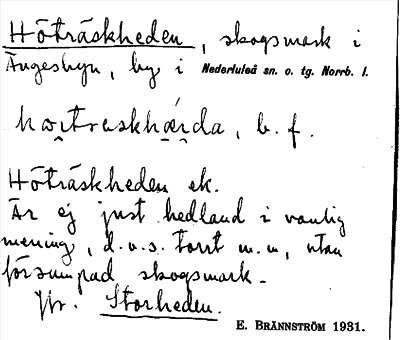 Höträskheden, skogsmark i
Ängesbyn, by i Nederluleå sn. o. tg. Norrb. l.
b. f.
Höträskheden ek.
Är ej just hedland i vanlig
mening, d.v.s. torrt m.m, utan
försumpad skogsmark.
Jfr. Storheden.
E. BRÄNNSTRÖM 1931.